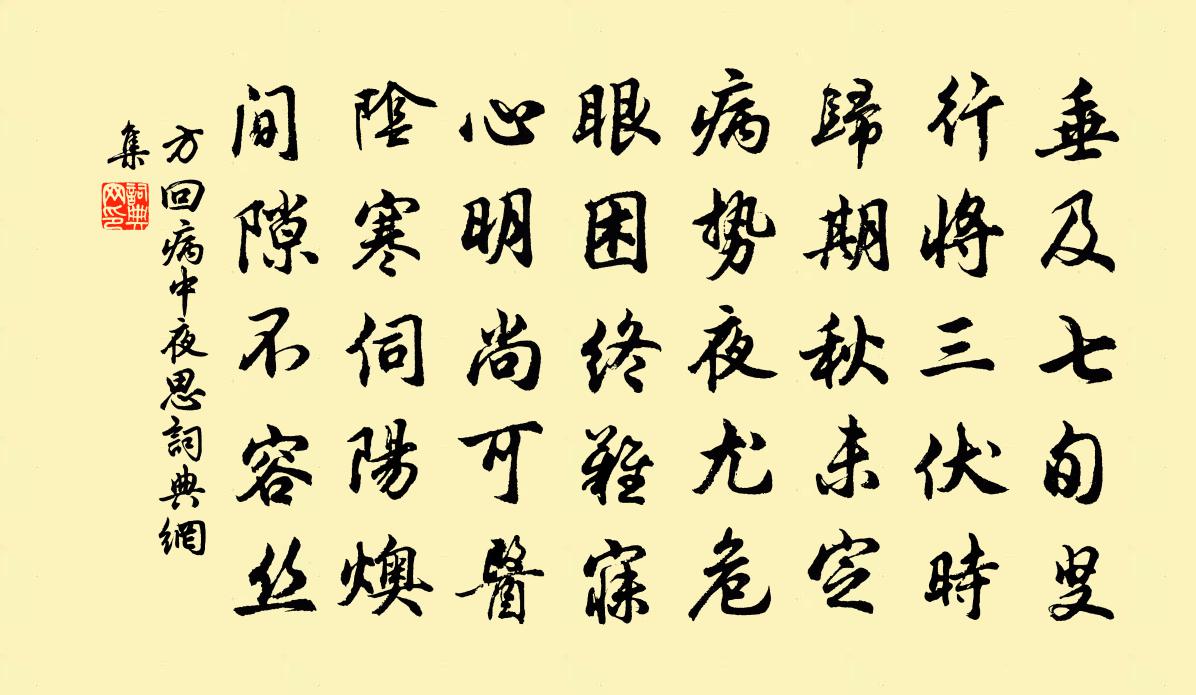 垂及七旬叟
行将三伏時
歸期秋未定
病势夜尤危
眼困终難寐
心明尚可醫
陰寒伺陽燠
间隙不容丝
方回病中夜思詞典網
集
詞典
网印